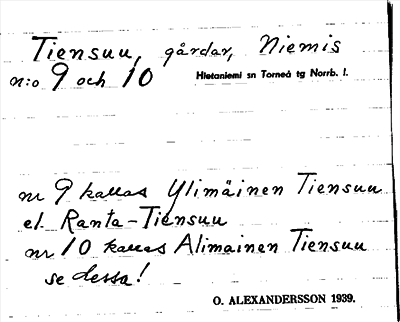 Tiensuu, gårdar, Niemis
n:o 9 och 10 Hietaniemi sn Torneå tg Norrb. l.
nr 9 kallas Ylimäinen Tiensuu
el. Ranta-Tiensuu
nr 10 kallas Alimainen Tiensuu
se dessa!
O. ALEXANDERSSON 1939.